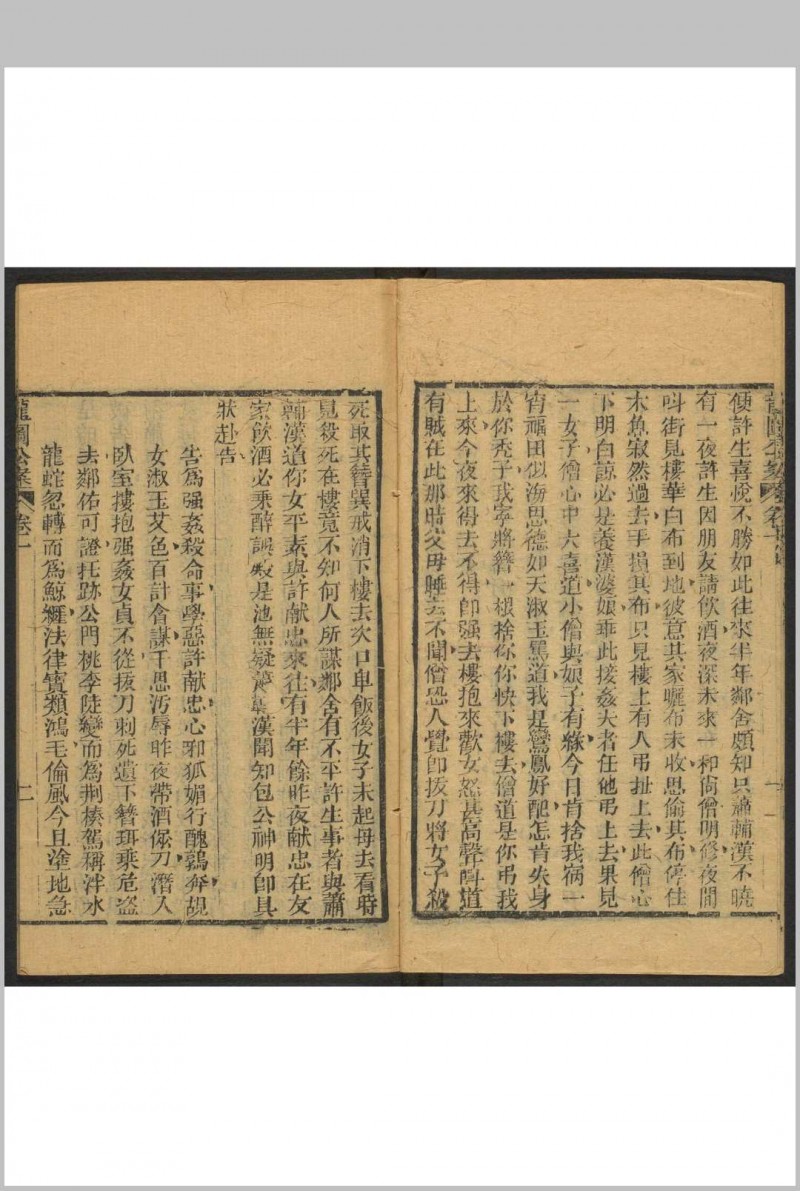 便許生喜悅不勝如此往來半年鄰舍頗知只蕭輔漢不曉
有一夜許生因朋友請飲酒夜深未來一和尚僧明修夜間
叫街見樓華白布到地彼意其家曬布未收思偷其布停住
木魚寂然過去手損其布只見樓上有人弔扯上去此僧心
下明白諒必是養漢婆娘垂此接姦夫者任他弔上去果見
一女子僧心中大喜道小僧與娘子有緣今日肯捨我宿一
宵福田似海恩德如天淑玉罵道我是鸞鳳好配怎肯失身
於你禿子我寧將簪一根捨你你快下樓去僧道是你弔我
上來今夜來得去不得即强去樓抱來歡女怒甚高聲叫道
有賊在此那時父母睡去不聞僧恐人覺即拔刀將女子殺
死取其簪珥戒消下樓去次日早飯後女子未起母去看時
見殺死在樓竟不知何人所謀鄰舍有不平許生事者與蕭
輔漢道你女平素與許献忠來往有半年餘昨夜献忠在友
家飲酒必乘醉誤殺是他無疑蕭輔漢聞知包公神明即具
狀赴告
告爲强姦殺命事學惡許献忠心邪狐媚行醜鶉奔覘
女淑玉艾色百計會謀千思汚辱昨夜帶酒佩刀潛入
臥室摟抱强姦女貞不從拔刀刺死遺下簪珥乘危盜
去鄰佑可證托跡公門桃李陡變而爲荆榛駕稱泮水
龍蛇忽轉而爲鯨鱷法律實類鴻毛倫風今且塗地急
龍圖公案 卷一 二